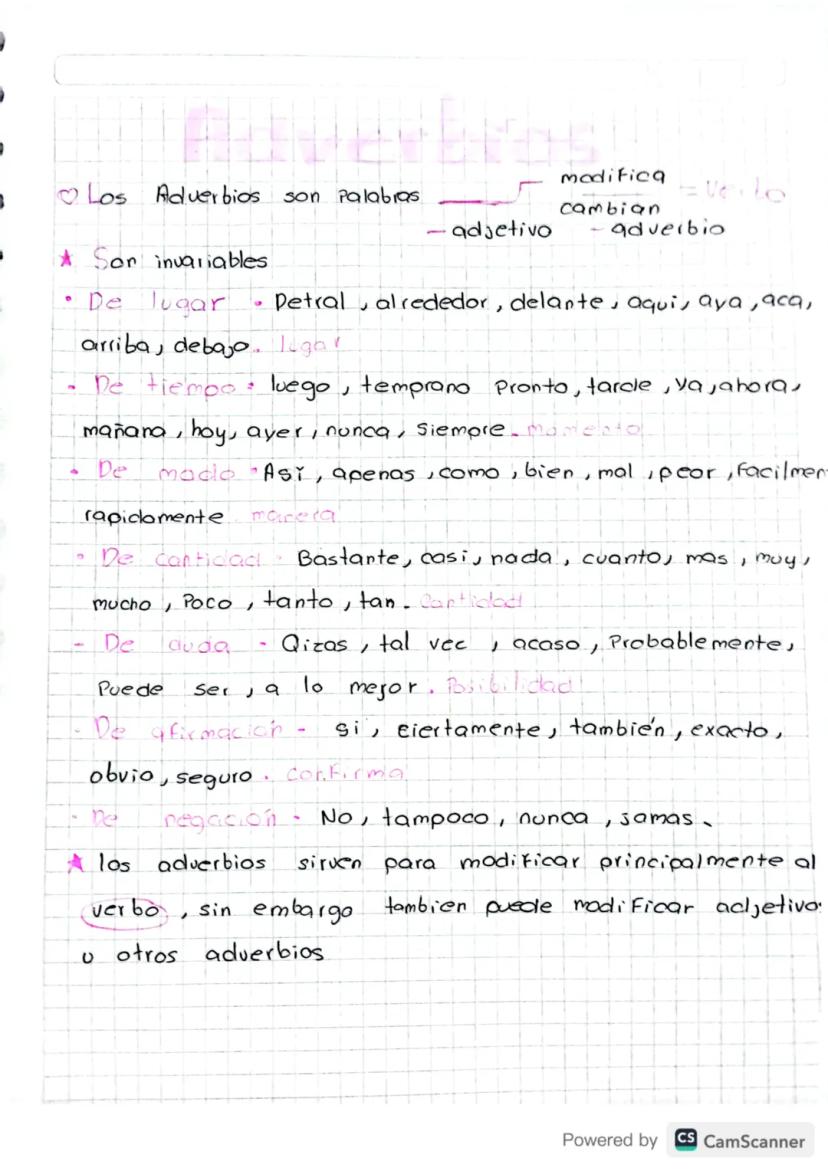 Adverbios
♡ Los Adverbios son Palabras modifica = Verbo
cambian
- adjetivo - adverbio
★ Son invariables
• De lugar • Detral, alrededor, delante, aqui, aya, aca,
arriba, debajo. lugar
• De tiempo • luego, temprano Pronto, tarde, ya, ahora,
mañana, hoy, ayer, nunca, siempre. momento
• De modo • Así, apenas, como, bien, mal, peor, Facilmen
rapidamente manera
• De cantidad • Bastante, casi, nada, cuanto, mas, muy,
mucho, Poco, tanto, tan. Cantidad
- De duda - Qizas, tal vec, acaso, Probablemente,
Puede ser, a lo mejor. Posibilidad
- De afirmación - si, ciertamente, también, exacto,
obvio, seguro. Confirma
- De negación - No, tampoco, nunca, jamas.
★ los adverbios sirven para modificar principalmente al
verbo, sin embargo tambien puede modificar adjetivo
u otros adverbios
Powered by CS CamScanner